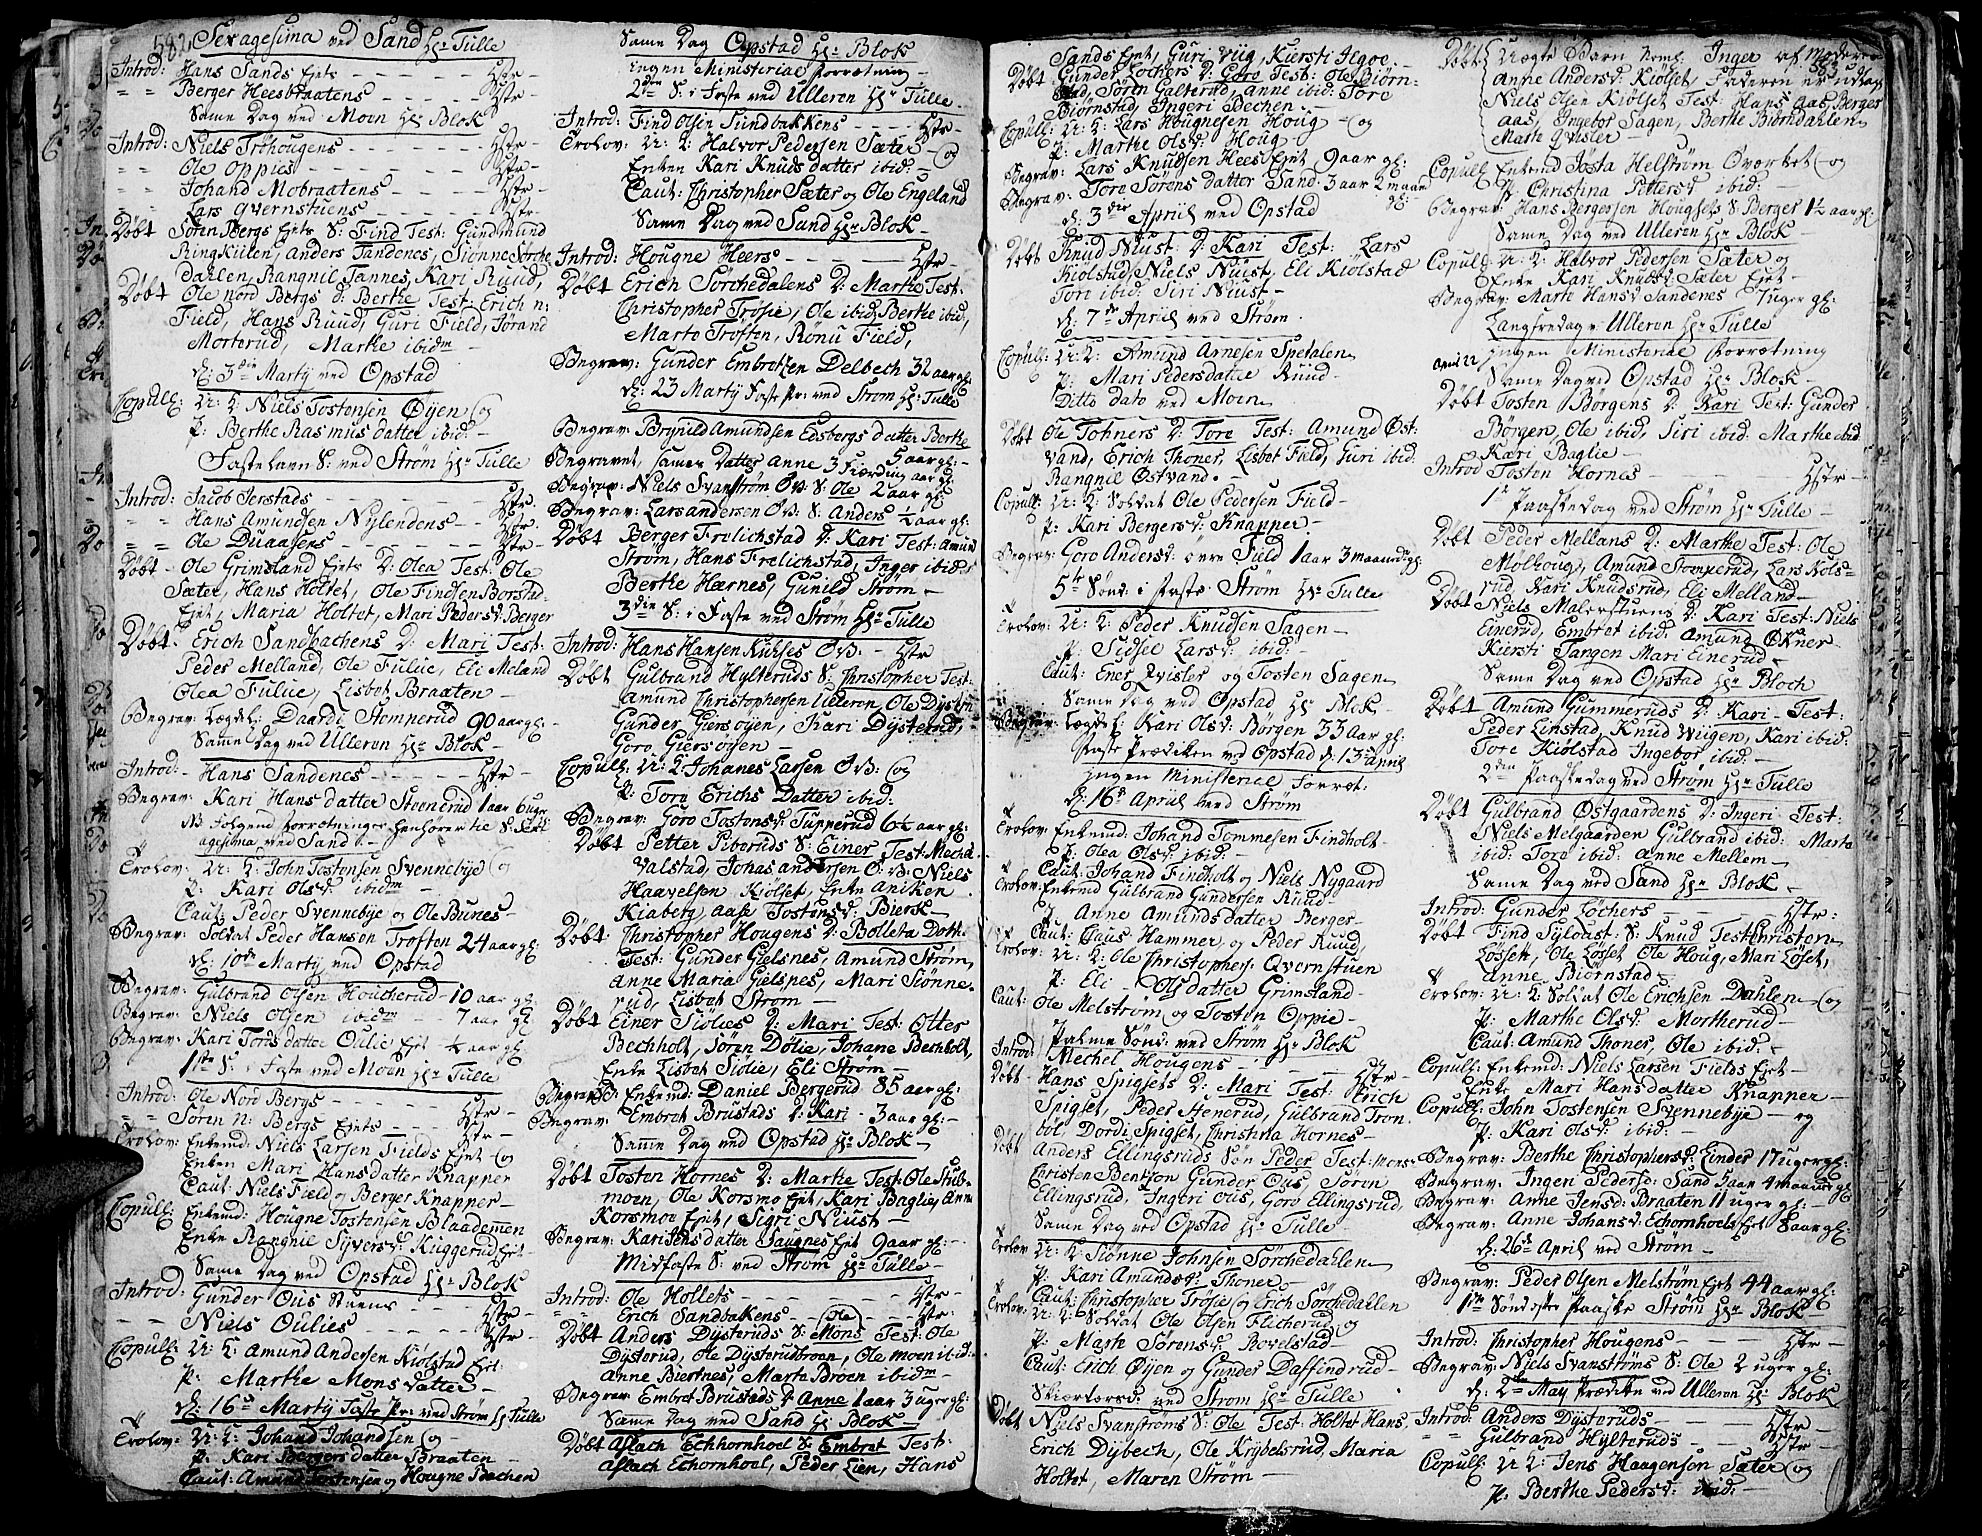 582 Sexagesima ved Sand Hr Tulle
Introd: Hans Sands Ejets - - - Hstr -
" " Berger Heesbraatens - - - Hstr -
Same Dag ved Moen Hr Blok
Introd: Niels Tröhougens - - - Hstr -
" " Ole Oppies - - - Hstr -
" " Johand Mobraatens - - - Hstr -
" " Lars Qvernstuens - - - Hstr -
Döbt Sören Bergs Ejets S: Find Test: Gundmund
Ringkiilen, Anders Tandenes, Siönne Sörche
Dahlen, Rangnil Tannes, Kari Ruud,
Döbt Ole nord Bergs D: Berthe Test: Erich n:
Field, Hans Ruud, Guri Field, Törand
Morterud, Marthe ibidm
d: 3die Martij ved Opstad
Copull: U: K: Niels Tostensen Öyen og
P: Berthe Rasmus datter ibid: -
Fastelavn S: ved Ström Hr Tulle
Introd: Jacob Jerstads - - - Hstr -
" " Hans Amundsen Nylendens - - Hstr -
" " Ole Duaasens - - - Hstr -
Döbt - Ole Grimsland Ejets D: Olea Test: Ole
Sæter, Hans Holtet, Ole Findsen Borstad-
Ejet, Maria Holtet, Mari Pedersd: Berger
Döbt: Erich Sandbachens D: Mari Test:
Peder Melland, Ole Fulue, Eli Meland
Olea Fulue, Lisbet Braaten -
Begrav: Lægdsl: Daardi Stomperud 90 aar gl: -
Same Dag ved Ulleren Hr Blok -
Introd: - Hans Sandenes - - - Hstr -
Begrav: Kari Hans datter Steenerud 1 aar 6 uger
NB følgend forretninger henhörer til S: Sex
agesima ved Sand: -
Trolov: U: K: John Tostensen Svennebye og
P: Kari Olsd: ibidm -
Caut: Peder Svennebye og Ole Bures -
Begrav: Soldat Peder Hansen Troften 24 aar gl:
d: 10de Martij ved Opstad
Begrav: Gulbrand Olsen Houcherud - 10 aar gl:
Begrav: Niels Olsen ibidm - 7 aar gl:
Begrav: Kari Toris datter Oulie Ejet ½ aar gl:
1ste S: i Faste ved Moen Hr Tulle
Introd: Ole Nord Bergs - - - Hstr -
" " Sören n: Bergs Ejets - - - Hstr -
Trolov: Enkemd: Niels Larsen Fields Ejet og
Enken Mari Hansdatter Knapper
Caut: Niels Field og Berger Knapper -
Copull: Enkemd: Hougne Tostensen Blaademen
Enke Rangnie Syversd: Kuggerud Ejet -
Same Dag ved Opstad Hr Blok
Introd: Gunder Ous - - - Hstr -
Niels Oulies - - - Hstr -
Copull: U: K: Amund Andersen Kiölstad Ejet
P: Marthe Mons datter -
d: 16de Martij Faste Pr: ved Ström Hr Tulle
Trolov: U: K: Johand Johandsen og -
P: Kari Bergers datter Braaten -
Caut: Amund Tostensen og Hougne Bachen
Same Dag Opstad Hr Blok
Ingen Ministeriae forretning -
2den S: i Faste ved Ulleren Hr Tulle -
Introd: Find Olsen Sundbakkens - - Hstr -
Trolov: U: K: Halvor Pedersen Sæter - og
Enken Kari Knuds datter ibid: -
Caut: Christopher Sæter og Ole Engeland
Same Dag ved Sand Hr Blok -
Introd: Hougne Heers - - - Hstr -
Döbt Erich Sörchedalens D: Marthe Test:
Christopher Trösie, Ole ibid, Berthe ibid,
Marte Troften, Rönu Field,
Begrav: Gunder Embretsen Delbech 32 aar gl:
d: 23 Martij Faste Pr: ved Ström Hr Tulle
Begrav: Brynild Amundsen Edsbergs datter Berthe
5 aar gl: -
Begravet, samen Datter Anne 3 Fierding aar gl:
Begrav: Niels Svanström Ov: S: Ole 2 aar gl:
Begrav: Lars andersen Ov: S: Anders ½ aar gl:
Döbt Berger Frelichstad D: Kari Test: Amund
Ström, Hans Frelichstad, Inger ibid:
Berthe Hærnes, Gunild Ström -
3die S: i Faste ved Ström Hr Tulle
Introd: Hans Hansen Kuhses Ov: - Hstr
Döbt Gulbrand Hylteruds S: Christopher Test:
Amund Christophersen Ulleren, Ole Dyst
Gunder Giersöyen, Kari Dysterud,
Goro Giersöyen -
Copull: U: K: Johanes Larsen Ov: og
P: Tore Erichs Datter ibid:
Begrav: Goro Tostensd: Tupperud 6½ aar gl:
Döbt Petter Piberuds S: Einer Test: Mechel
Valstad, Johas andersen O:v: Niels
Haavelsen Kiölset, Enke Aniken
Kiaberg Aase Tostensd: Bierck -
Döbt Christopher Hougens D: Bolleta Doth:
Test: Gunder Gielsnes, Amund Ström,
Anne Maria Gielsnes, Mari Siönne
rud, Lisbet Ström -
Döbt Einer Siölies D: Mari Test: Otter
Bechholt, Sören Dölie, Johane Bechholt,
Enke Lisbet Siölie, Eli Ström -
Begravd: Enkemd: Daniel Bergerud 85 aar gl:
Begrav: Embret Brustads D: Kari - 3 aar gl: -
Same Dag ved Opstad Hr Blok -
Döbt Tosten Hornes D: Marthe Test: Ole Stub-
moen, Ole Korsmo Ejet, Kari Baglie, Anne
Korsmoe Ejet, Sigri Niust -
Begrav: Kari Jens datter Saugnes Ejet 9 aar gl: -
Midfaste S: ved Ström Hr Tulle -
Introd: Ole Hollets - - - Hstr -
Erich Sandbakens - - - Hstr -
Ole
Döbt Anders Dysteruds S: Mons Test: Ole
Dysterud, Ole Dysterudbroen, Ole moen ibid:
Anne Biertnes, Marte Broen ibidm -
Begrav: Embret Brustads D: Anne 1 aar 3 uger gl:
Same Dag ved Sand Hr Blok -
Döbt Aslach Echhornhoel S: Embret Test:
Aslach Echornhoel, Peder Lien, Hans
Sands Ejet, Guri Viig, Kiersti Ilgoe. -
Döbt Gunder Löchers D: Goro Test: Ole Biörn-
stad, Sören Galterud, Anne ibid: Tore
Biörnstad, Ingeri Bechen. -
Copull: U: K: Lars Hougnesen Houg - og
P: Marthe Olsd: Houg -
Begrav: Lars Knudsen Hees Ejet 9 aar gl:
Begrav: Tore Sörens datter Sand: 3 aar 2 maaned
gl: -
d: 3die Apriil ved Opstad
Döbt Knud Niust D: Kari Test: Lars
Kiölstad, Niels Niust, Eli Kiölstad
Tori ibid: Siri Niust -
d: 7de Apriil ved Ström
Copull: U: K: Amund Arnesen Spetalen
P: Mari Pedersdatter Ruud -
Ditto dato ved Moen
Döbt Ole Tohners D: Tore Test: Amund Öst:
vand, Erich Thoner, Lisbet Field, Guri ibid:
Rangnil Östvand. -
Copull: U: K: Soldat Ole Pedersen Field -
P: Kari Bergersd: Knapper -
Begrav: Goro Andersd: övre Field 1 aar 3 maaneder gl:
5te Sönd: i Faste Ström Hr Tulle
Trolov: U: K: Peder Knudsen Sagen -
P: Sidsee Larsd: ibid: -
Caut: Ener Qvisler og Tosten Sagen
Same Dag ved Opstad Hr Blok -
Begrav: Lægdsl: Kari Olsd: Börgen 33 Aar gl:
Faste Prædiken ved Opstad d: 13de April
Ingen Ministerial Forret:
d: 16de Apriil ved Ström
Trolov: Enkemd: Johand Tommesen Findholt -
P: Olea Olsd: ibid: -
Caut: Johand Findholt og Niels Nygaard
Trolov: Enkemd Gulbrand Gundersen Ruud
P: Anne Amundsdatter Berger -
Caut: Claus Hammer og Peder Ruud,
Trolov: U: K: Ole Christophers: Qvernstuen
P: Eli - Olsdatter Grimsland -
Caut: Ole Melström og Tosten Oppie -
Palme Sönd: ved Ström Hr Blok
Introd: Mechel Hougens - - - Hstr -
Döbt Hans Spigsets D: Mari Test: Erich
Spigset, Peder Stenerud, Gulbrand Tron
bol, Dordi Spigset, Christina Hornes -
Döbt Anders Ellingsruds Sön Peder Test: Mons:
Christen Bentson Gunder Ous, Sören
Ellingsrud, Ingeri Ous, Goro Ellingsrud,
Same Dag ved Opstad Hr Tulle -
Trolov U: K: Siönne Johnsen Sörchedahlen
P: Kari Amundsd: Thoner -
Caut: Christopher Trösie og Erich Sörchedahlen
Trolov: U: K: Soldat Ole Olsen Flicherud og
P: Marth Sörensd: Rovelstad -
Caut: Erich Öyen og Gunder Daffindrud -
Skiertorsd: ved Ström Hr Tulle
Döbt Niels Svanströms S: Ole Test: Holtet Hans,
Erich Dybech, Ole Krybelsrud, Maria
Holtet, Maren Ström -
Döbt Uægte Barn noml: Inger af Moderen
Anne Andersd: Kiölset, Faderen er udlagt
Niels Olsen Kiölset Test: Hans Aas, Berger
Aas, Ingebor Sagen, Berthe Biörndahlen
Marth Qvisler -
Copull: Enkemd Jösta Helström Overket og
P: Christina Pettersd: ibid: -
Begrav: Hans Bergersen Hougsets S: Berger 1½ aar gl:
Same Dag ved Ulleren Hr Blok -
Copull: U: K: Halvor Pedersen Sæter og
Enke Kari Knudsd: Sæter Ejet -
Begrav: Marth Hansd: Sandenes 7 uger gl:
Langfredag v: Ulleren Hr Tulle
Ingen Ministerial forretning
April 22 Same Dag ved Opstad Hr Blok -
Döbt Tosten Börgens D: Kari Test: Gunder
Börgen, Ole ibid, Siri ibid: Marthe ibid:
Kari Baglie -
Introd Tosten Hornes - - Hstr -
1te Paaskedag ved Ström Hr Tulle -
Döbt Peder Mellans D: Marthe Test: Ole
Mölhoug, Amund Stomperud, Lars Kols-
rud, Kari Knudsrud, Eli Melland -
Döbt Niels Malerstuens D: Kari Test: Niels
Einerud, Embret ibid: Amund Økner -
Kiersti Tangen Mari Einerud -
Same Dag ved Opstad Hr Bloch
Döbt Amund Gummeruds D: Kari - Test:
Peder Linstad, Knud Wiigen, Kari ibid:
Tore Kiölstad Ingebor ibid: -
2den Paaskedag ved Ström Hr Tulle
Döbt Gulbrand Östgaardens D: Ingeri - Test:
Niels Melgaarden Gulbrand ibid: Marte
ibid: Tore ibid: Anne Mellem -
Same Dag ved Sand Hr Blok -
Introd: Gunder Löchers - - - Hstr:
Döbt Find Syloust: S: Knud Test: Christen
Lösset, Ole Lösset Ole Houg, Mari Löset,
Anne Biörnstad -
Trolov: U: K: Soldat Ole Erichsen Dahlen - og
P: Marthe Olsd: Mortherud -
Caut: Amund Thoner, Ole ibid: -
Copull: Enkemd: Niels Larsen Fields Ejet -
Enke Mari Hansdatter Knapper -
Copull: John Tostensen Svennebye - og
P: Kari Olsd: ibid: -
Begrav: Berthe Christophersd: Einder 17 uger gl:
Begrav: Ingen Pedersd: Sand 3 aar 4 maaneder gl:
Begrav: Anne Jensd: Braaten 11 uger gl: -
Begrav: Anne Johansd: Echornhoels Ejet 8 aar gl:
d: 26de April ved Ström -
Begrav: Peder Olsen Melström Ejet 44 aar gl:
1ste Söndag efter Paaske Ström Hr Blok -
Introd: Christopher Hougens - - Hstr -
Begrav: Niels Svanströms S: Ole 2 uger gl:
d: 2de May Prædiken ved Ulleren Hr Blok
Introd: Anders Dysteruds - - Hstr -
" " Gulbrand Hylteruds - - Hstr -
Copull: U: K: Jens Haagenson Sæter og
P: Berthe Pedersd: ibid: -